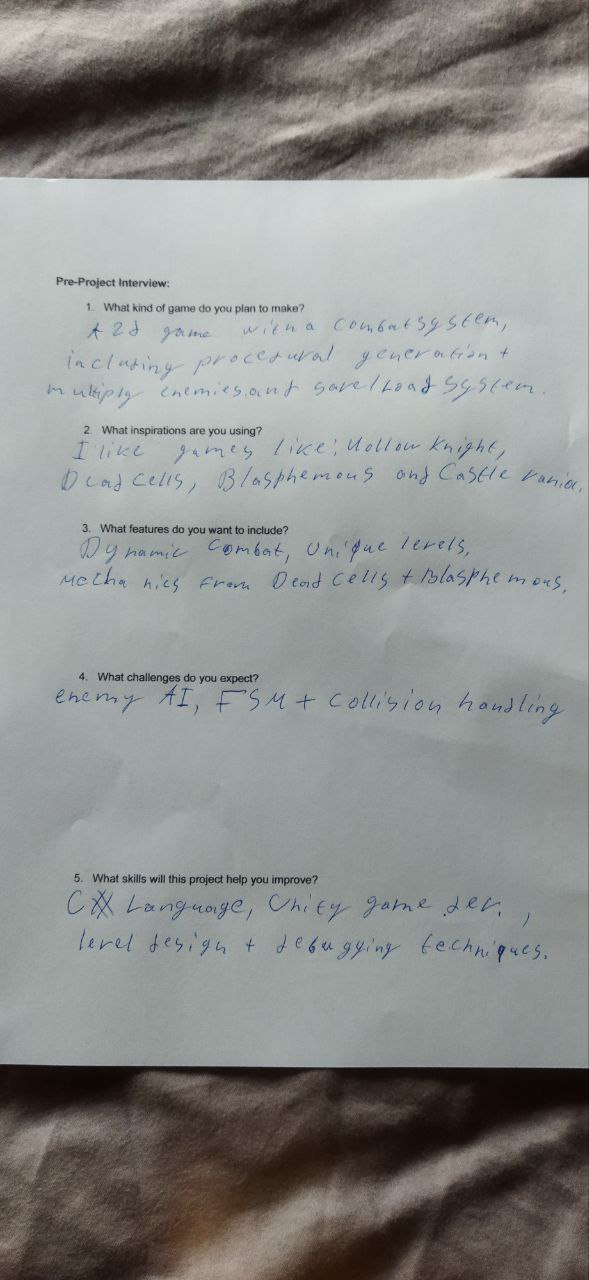 Pre-Project Interview:
1. What kind of game do you plan to make?
A 2d game with a combat system,
including procedural generation +
multiply enemies and save/Load system.
2. What inspirations are you using?
I like games like: Hollow Knight,
Dead Cells, Blasphemous and Castle vania.
3. What features do you want to include?
Dynamic Combat, Unique levels,
Mechanics From Dead Cells + Blasphemous.
4. What challenges do you expect?
enemy AI, FSM + Collision handling
5. What skills will this project help you improve?
C# Language, Unity game dev.,
level design + debugging techniques.